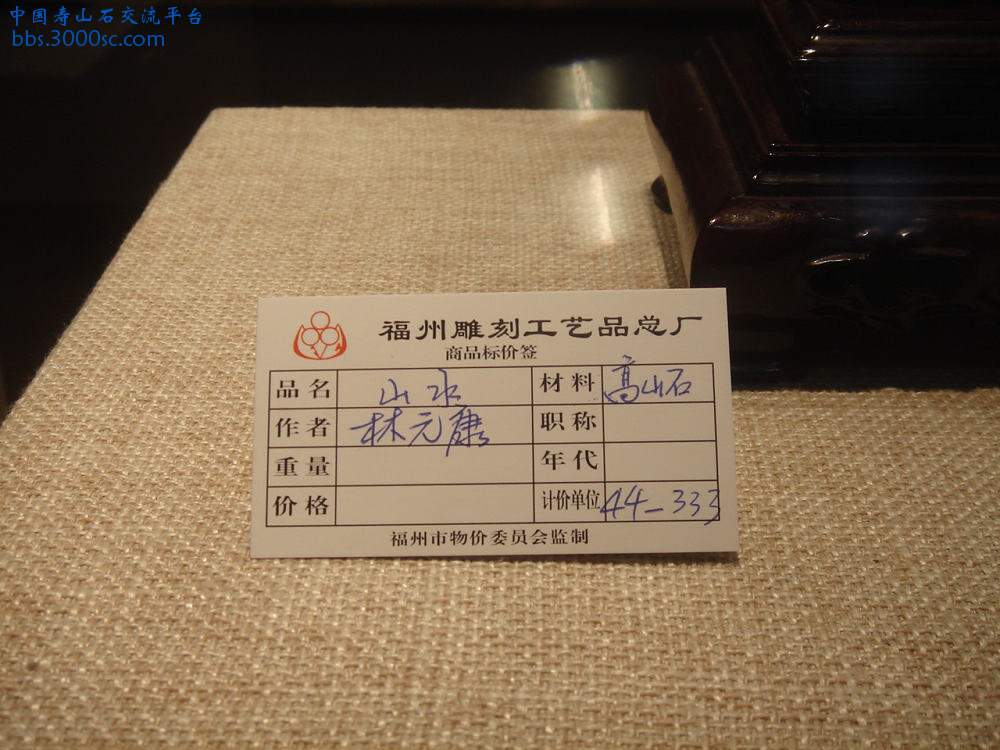 中国寿山石交流平台
bbs.3000sc.com
福州雕刻工艺品总厂
商品标价签
品名 山水 材料 高山石
作者 林元康 职称
重量 年代
价格 计价单位 44-333
福州市物价委员会监制